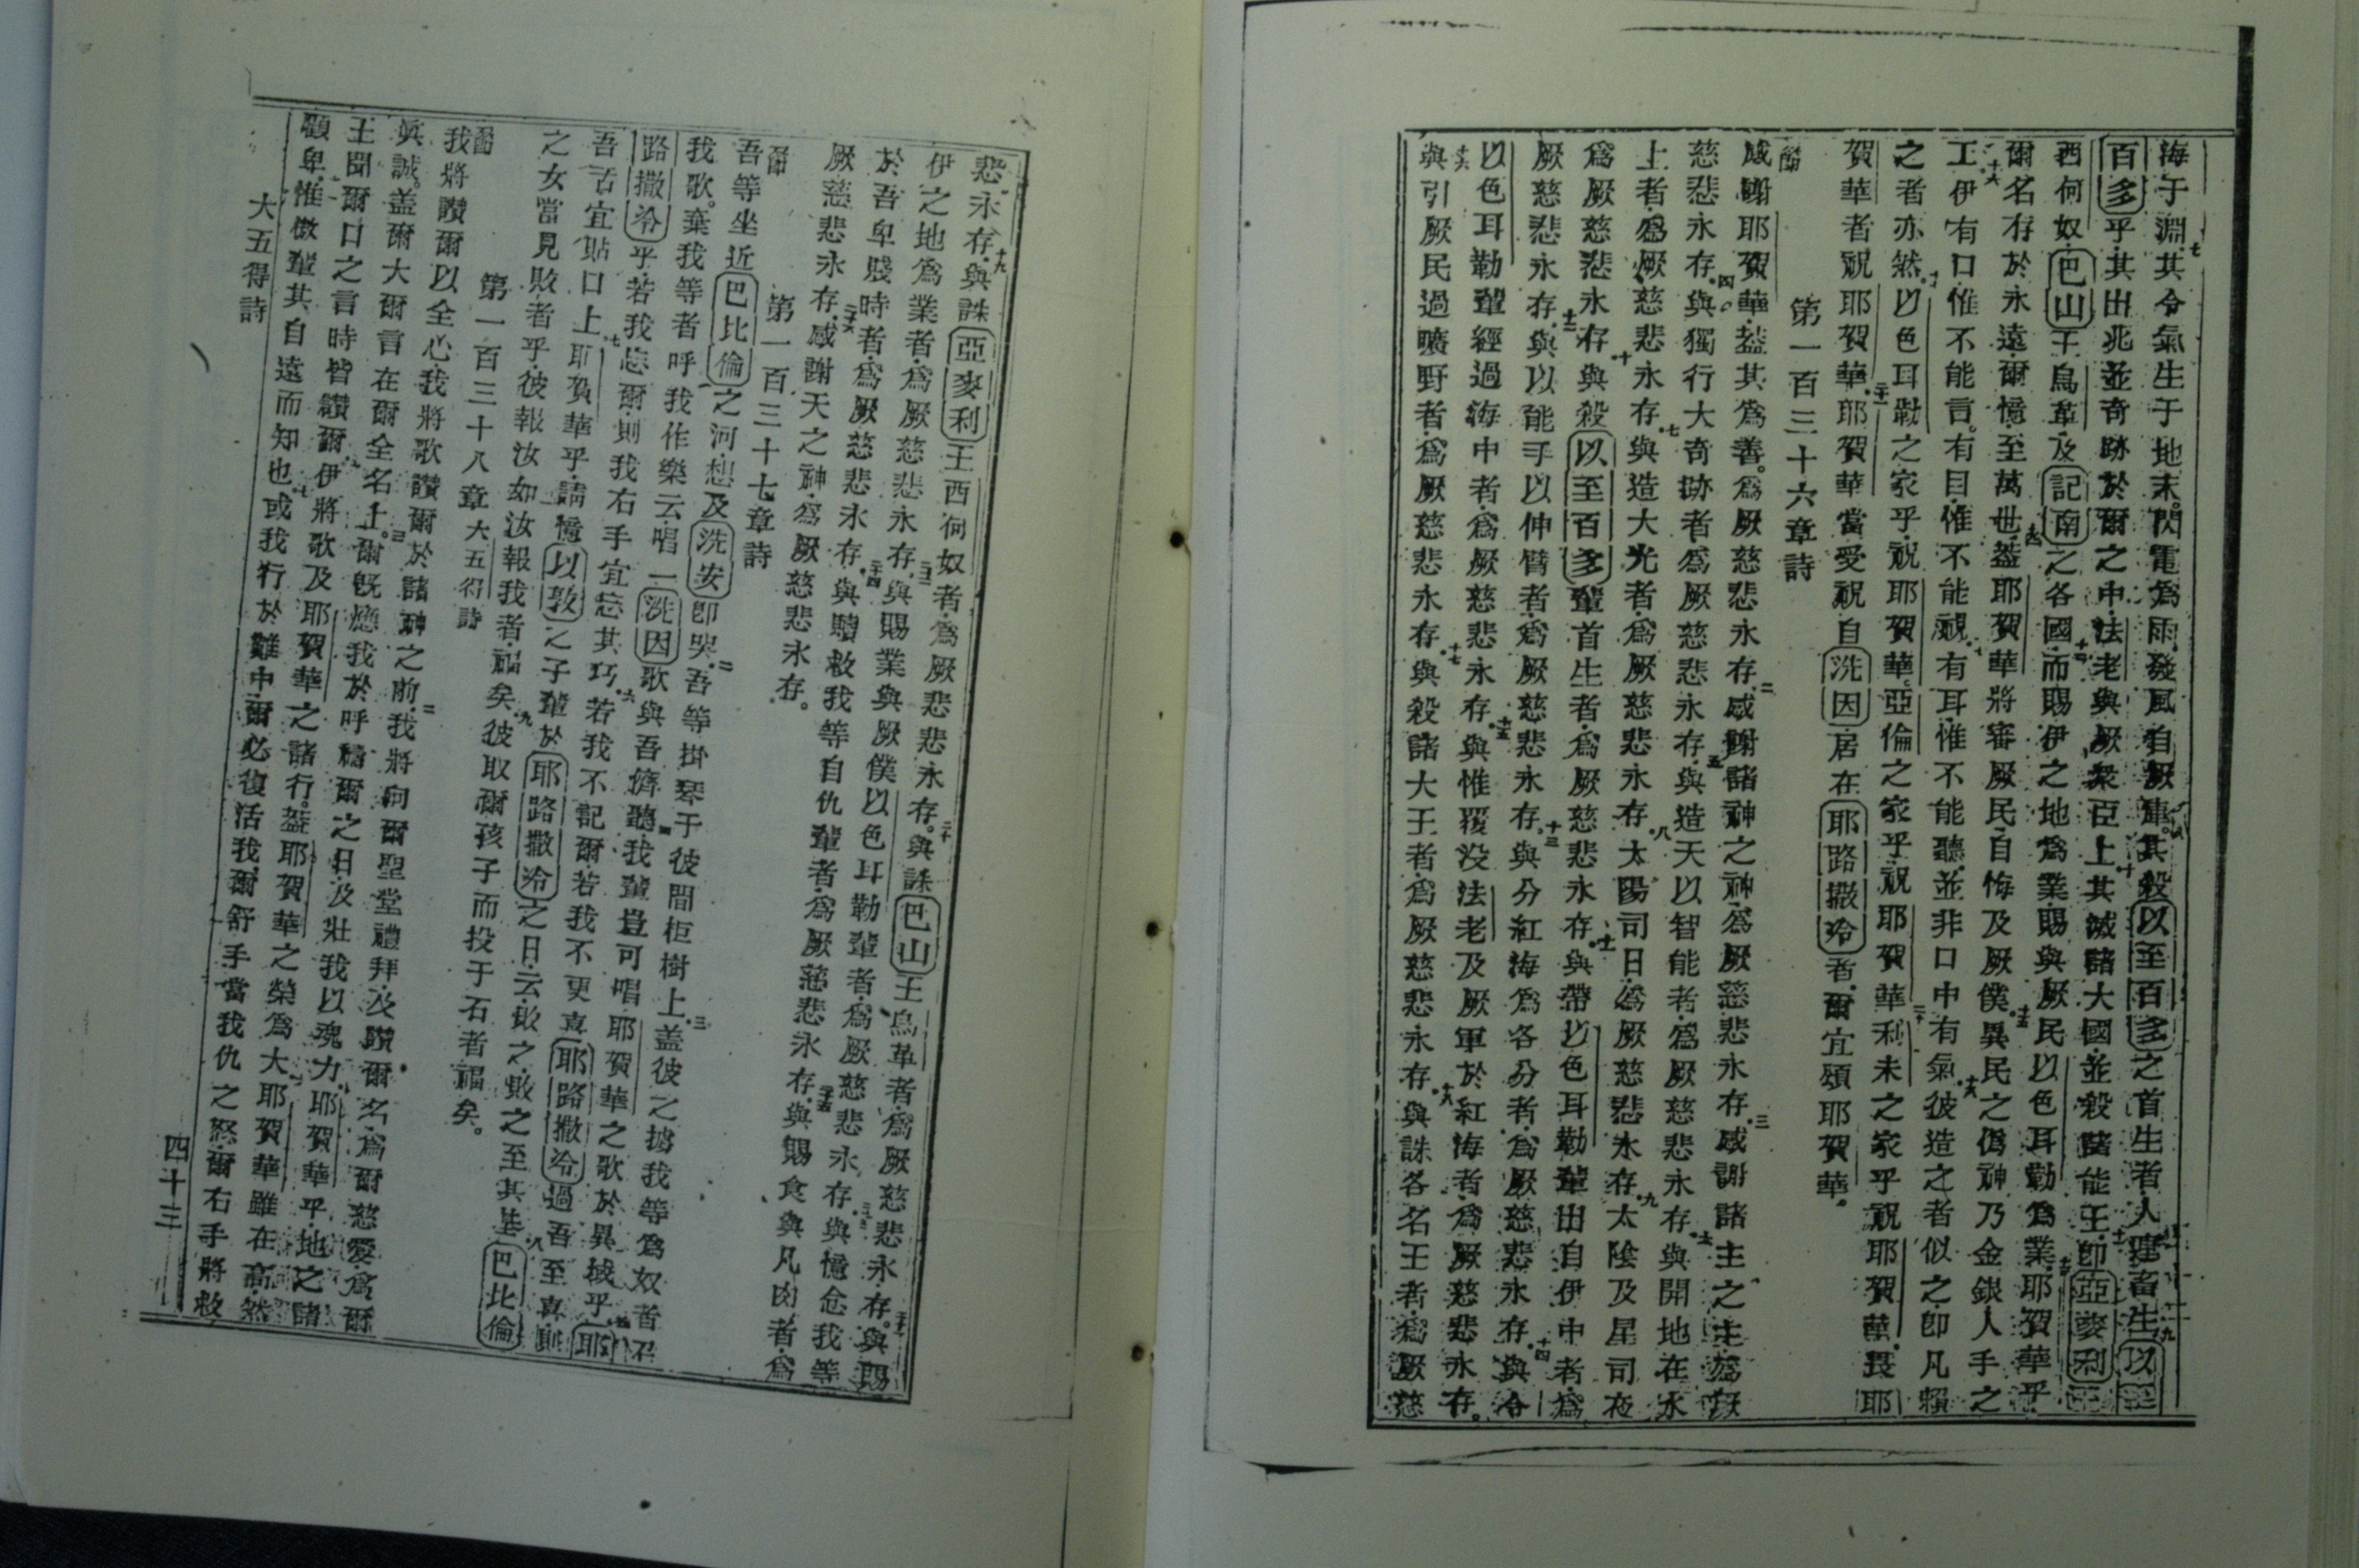 海于淵七其令氣生于地末閃電爲雨發風自厥庫八其殺以至百多之首生者人連畜生九以至
百多乎其出兆並奇跡於爾之中法老與厥衆臣上十其滅諸大國並殺諸能王十一卽亞麥利王
西何奴巴山王烏革及記南之各國十二而賜伊之地爲業賜與厥民以色耳勒爲業十三耶賀華乎
爾名存於永遠爾憶至萬世十四蓋耶賀華將審厥民自悔及厥僕十五異民之偽神乃金銀人手之
工十六伊有口惟不能言有目惟不能視十七有耳惟不能聽並非口中有氣十八彼造之者似之卽凡賴
之者亦然十九以色耳勒之家乎祝耶賀華亞倫之家乎祝耶賀華二十利未之家乎祝耶賀華畏耶
賀華者祝耶賀華二十一耶賀華當受祝自洗因居在耶路撒冷者爾宜頌耶賀華
第一百三十六章詩
感謝耶賀華蓋其爲善爲厥慈悲永存二感謝諸神之神爲厥慈悲永存三感謝諸主之主爲厥
慈悲永存四與獨行大奇跡者爲厥慈悲永存五與造天以智能者爲厥慈悲永存六與開地在水
上者爲厥慈悲永存七與造大光者爲厥慈悲永存八太陽司日爲厥慈悲永存九太陰及星司夜
爲厥慈悲永存十與殺以至百多輩首生者爲厥慈悲永存十一與帶以色耳勒輩出自伊中者爲
厥慈悲永存十二與以能手以伸臂者爲厥慈悲永存十三與分紅海爲各分者爲厥慈悲永存十四與令
以色耳勒輩經過海中者爲厥慈悲永存十五與惟覆没法老及厥軍於紅海者爲厥慈悲永存
十六與引厥民過曠野者爲厥慈悲永存十七與殺諸大王者爲厥慈悲永存十八與誅各名王者爲厥慈
悲永存十九與誅亞麥利王西何奴者爲厥慈悲永存二十與誅巴山王烏革者爲厥慈悲永存二十一與賜
伊之地爲業者爲厥慈悲永存二十二與賜業與厥僕以色耳勒輩者爲厥慈悲永存二十三與憶念我等
於吾卑賤時者爲厥慈悲永存二十四與贖救我等自仇輩者爲厥慈悲永存二十五與賜食與凡肉者爲
厥慈悲永存二十六感謝天之神爲厥慈悲永存
第一百三十七章詩
吾等坐近巴比倫之河想及洗安卽哭二吾等掛琴于彼間柜樹上三蓋彼之擄我等爲奴者召
我歌棄我等者呼我作樂云唱一洗因歌與吾儕聽四我輩豈可唱耶賀華之歌於異域乎五耶
路撒冷乎若我忘爾則我右手宜忘其巧六若我不記爾若我不更喜耶路撒冷過吾至喜則
吾舌宜貼口上七耶賀華乎請憶以敦之子輩於耶路撒冷之日云敗之敗之至其基八巴比倫
之女當見敗者乎彼報汝如汝報我者福矣九彼取爾孩子而投于石者福矣
第一百三十八章大五得詩
我將讚爾以全心我將歌讚爾於諸神之前二我將向爾聖堂禮拜及讚爾名爲爾慈愛爲爾
眞誠蓋爾大爾言在爾全名上三爾旣應我於呼禱爾之日及壯我以魂力四耶賀華乎地之諸
王聞爾口之言時皆讚爾五伊將歌及耶賀華之諸行蓋耶賀華之榮爲大六耶賀華雖在高然
顧卑惟傲輩其自遠而知也七或我行於難中爾必復活我爾舒手當我仇之怒爾右手將救
大五得詩
四十三